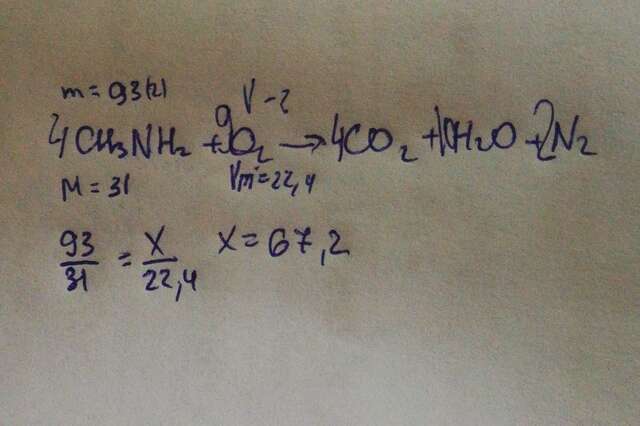 m = 93(г) V - ?
4CH₃NH₂ + 9O₂ → 4CO₂ + 10H₂O + 2N₂
M = 31 Vm = 22,4
93/31 = X/22,4 X = 67,2